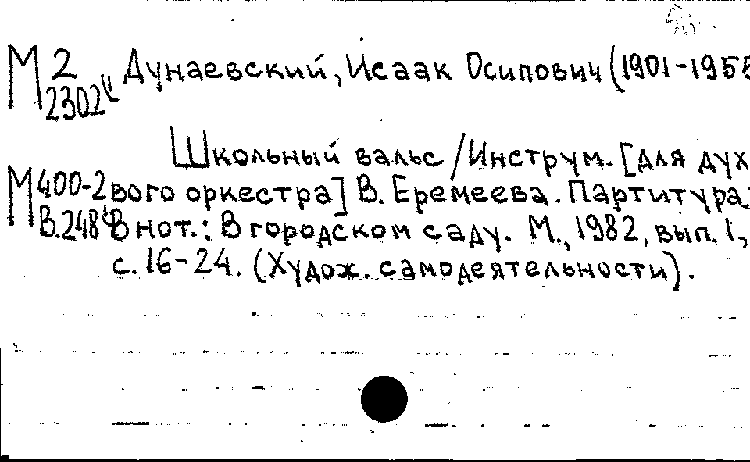 М 2 Дунаевский, Исаак Осипович (1901-1955
2302
Школьный вальс / Инструм. [для дух
М 400-2 вого оркестра] В. Еремеева. Партитура.
В.248 В нот.: В городском саду. М., 1982, вып. 1,
с. 16-24. (Худож. самодеятельности).